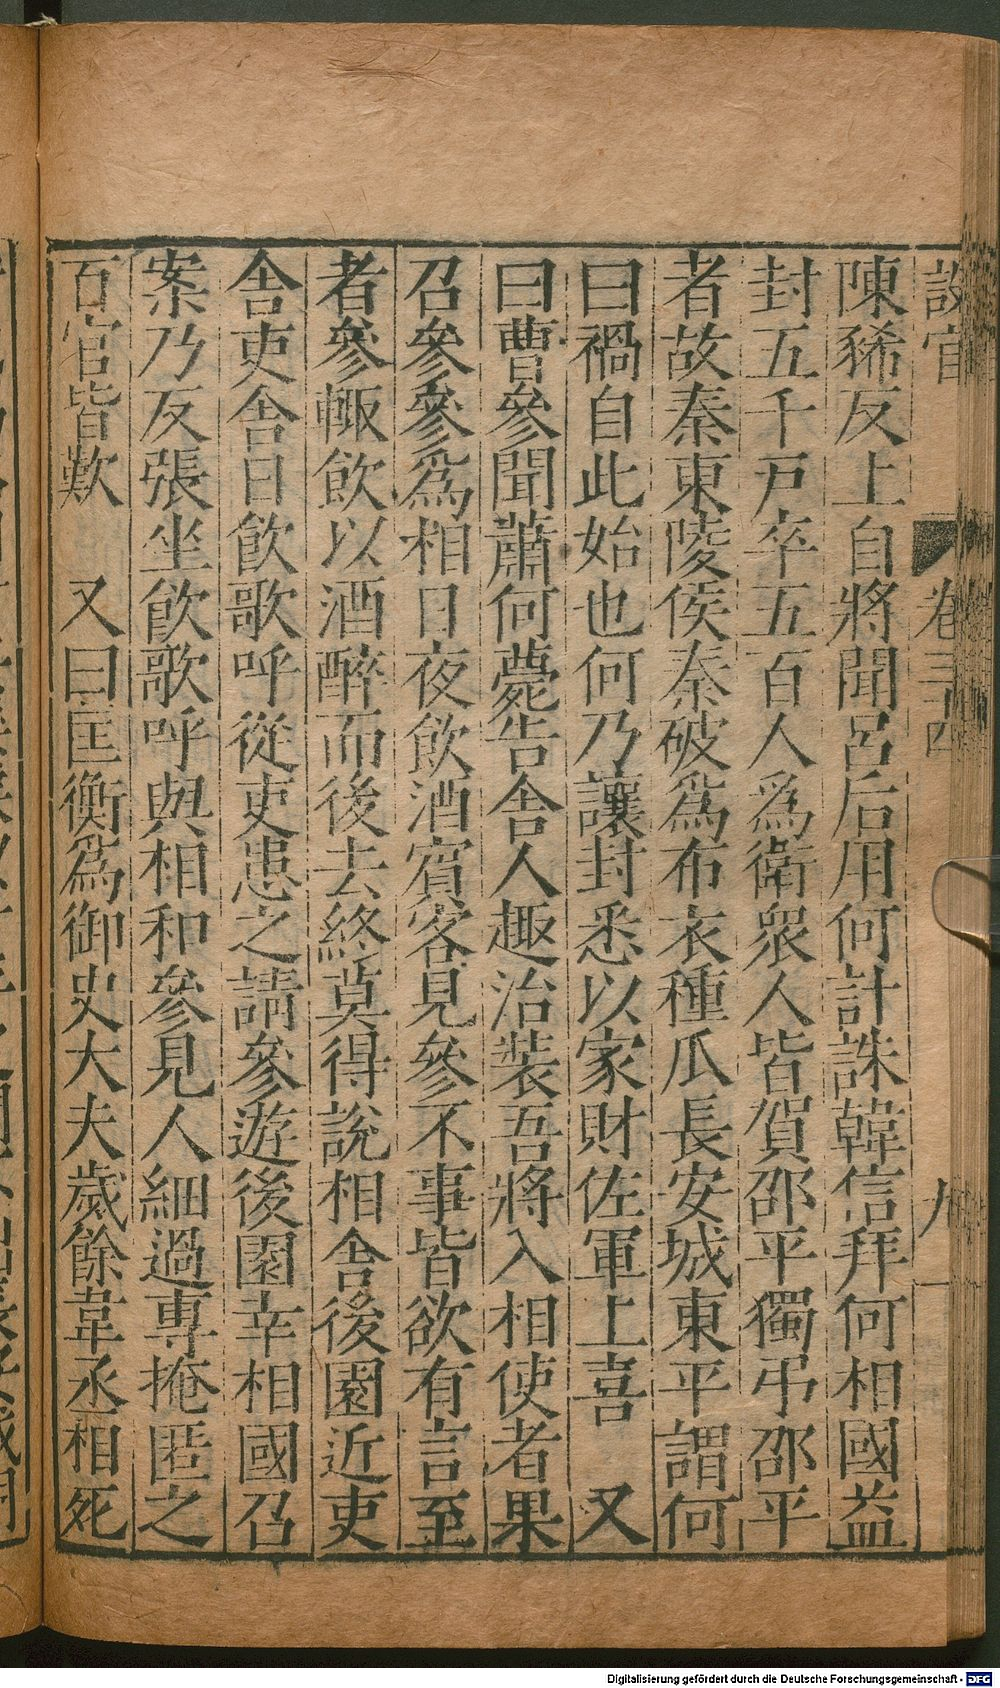 設官
卷
九
陳豨反上自將聞呂后用何計誅韓信拜何相國益
封五千戸卒五百人爲衛衆人皆賀邵平獨弔邵平
者故秦東陵侯秦破爲布衣種瓜長安城東平謂何
曰禍自此始也何乃讓封悉以家財佐軍上喜　又
曰曹參聞蕭何薨告舍人趣治裝吾將入相使者果
召參參爲相日夜飲酒賓客見參不事皆欲有言至
者參輙飲以酒醉而後去終莫得說相舍後園近吏
舍吏舍日飲歌呼從吏患之請參遊後園幸相國召
案乃反張坐飮歌呼與相和參見人細過專掩匿之
百官皆歎　又曰匡衡爲御史大夫歲餘韋丞相死
Digitalisierung gefördert durch die Deutsche Forschungsgemeinschaft - DFG